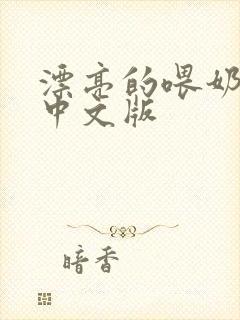 漂亮的喂奶
中文版
暗香